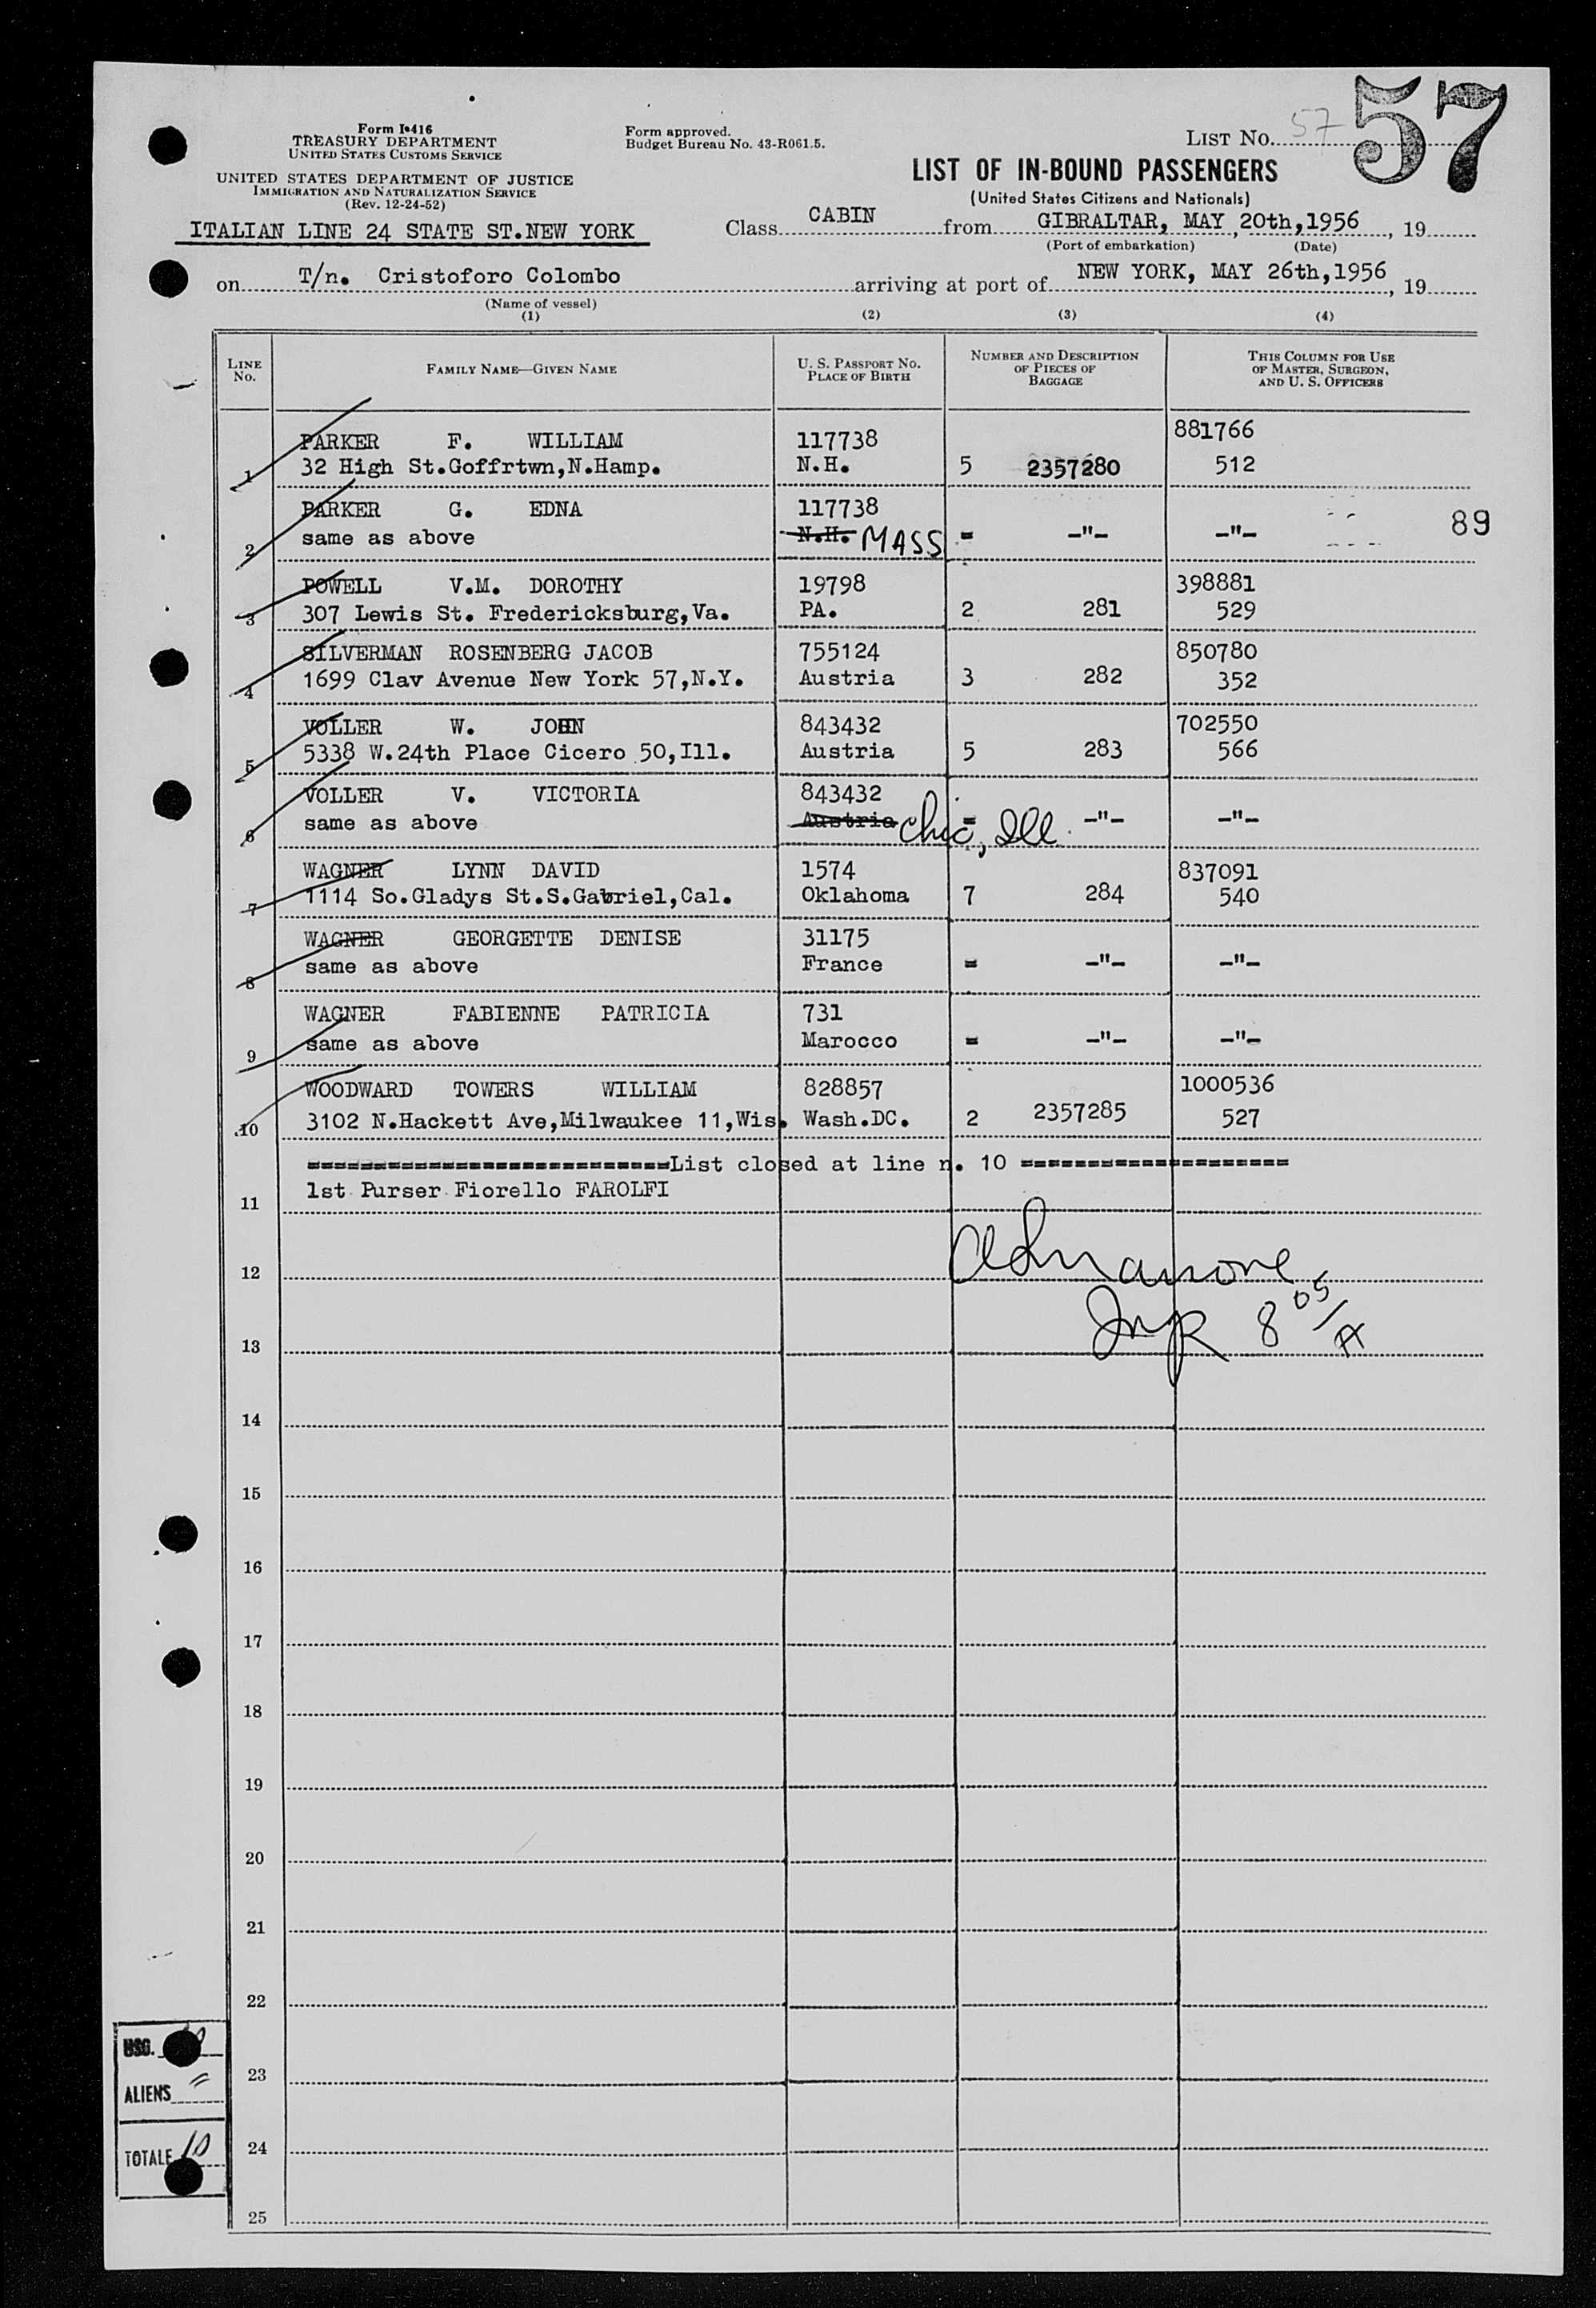 57
Form I-416
TREASURY DEPARTMENT
UNITED STATES CUSTOMS SERVICE
UNITED STATES DEPARTMENT OF JUSTICE
IMMIGRATION AND NATURALIZATION SERVICE
(Rev. 12-24-52)
Form approved.
Budget Bureau No. 43-R061.5.
LIST No. 57
LIST OF IN-BOUND PASSENGERS
(United States Citizens and Nationals)
ITALIAN LINE 24 STATE ST.NEW YORK
Class CABIN from GIBRALTAR, MAY 20th,1956, 19
(Port of embarkation) (Date)
on T/n. Cristoforo Colombo arriving at port of NEW YORK, MAY 26th,1956, 19
(Name of vessel)
(1) (2) (3) (4)
LINE No. FAMILY NAME—GIVEN NAME U. S. PASSPORT No. PLACE OF BIRTH NUMBER AND DESCRIPTION OF PIECES OF BAGGAGE THIS COLUMN FOR USE OF MASTER, SURGEON, AND U. S. OFFICERS
PARKER F. WILLIAM 117738 881766
1 32 High St.Goffrtwn,N.Hamp. N.H. 5 2357280 512
PARKER G. EDNA 117738
2 same as above N.H. MASS = -"- -"- 89
POWELL V.M. DOROTHY 19798 398881
3 307 Lewis St. Fredericksburg,Va. PA. 2 281 529
SILVERMAN ROSENBERG JACOB 755124 850780
4 1699 Clav Avenue New York 57,N.Y. Austria 3 282 352
VOLLER W. JOHN 843432 702550
5 5338 W.24th Place Cicero 50,Ill. Austria 5 283 566
VOLLER V. VICTORIA 843432
6 same as above Austria Chic, Ill. = -"- -"-
WAGNER LYNN DAVID 1574 837091
7 1114 So.Gladys St.S.Gabriel,Cal. Oklahoma 7 284 540
WAGNER GEORGETTE DENISE 31175
8 same as above France = -"- -"-
WAGNER FABIENNE PATRICIA 731
9 same as above Marocco = -"- -"-
WOODWARD TOWERS WILLIAM 828857 1000536
10 3102 N.Hackett Ave,Milwaukee 11,Wis. Wash.DC. 2 2357285 527
===========================List closed at line n. 10 ====================
11 1st Purser Fiorello FAROLFI
12
13 8 05/A
14
15
16
17
18
19
20
21
22
USC.
23
ALIENS =
24
TOTALE 10
25